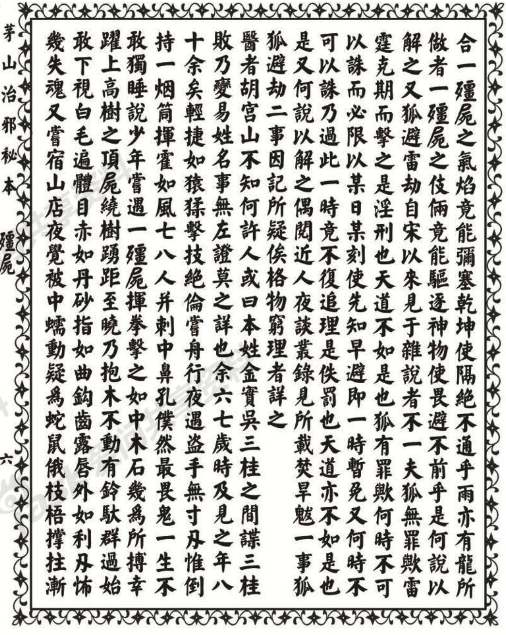 合一殭屍之氣焰竟能彌塞乾坤使隔絕不通乎雨亦有龍所
做者一殭屍之伎倆竟能驅逐神物使畏避不前乎是何說以
解之又狐避雷劫自宋以來見于雜說者不一夫狐無罪歟雷
霆克期而擊之是淫刑也天道不如是也狐有罪歟何時不可
以誅而必限以某日某刻使先知早避即一時暫免又何時不
可以誅乃過此一時竟不復追理是佚罰也天道亦不如是也
是又何說以解之偶閱近人夜談叢錄見所載焚旱魃一事狐
狐避劫二事因記所疑俟格物窮理者詳之
醫者胡宮山不知何許人或曰本姓金實吳三桂之間諜三桂
敗乃變易姓名事無左證莫之詳也余六七歲時及見之年八
十余矣輕捷如猿猱擊技絕倫嘗舟行夜遇盜手無寸刃惟倒
持一烟筒揮霍如風七八人并刺中鼻孔僕然最畏鬼一生不
敢獨睡說少年嘗遇一殭屍揮拳擊之如中木石幾爲所搏幸
躍上高樹之頂屍繞樹踴距至曉乃抱木不動有鈴馱群過始
敢下視白毛遍體目赤如丹砂指如曲鈎齒露唇外如利刃怖
幾失魂又嘗宿山店夜覺被中蠕動疑爲蛇鼠俄枝梧撐拄漸
茅山治邪秘本
殭屍
六